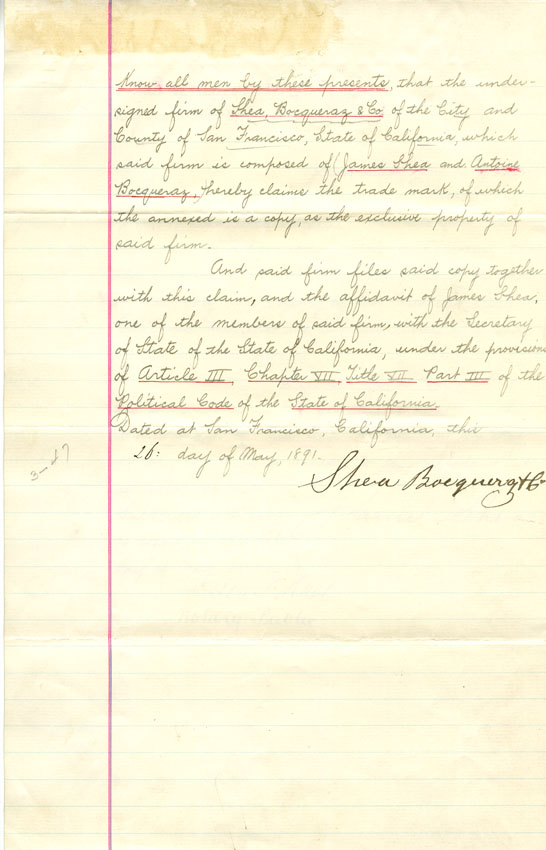 Know all men by these presents, that the under-
signed firm of Shea, Bocqueraz & Co. of the City and
County of San Francisco, State of California, which
said firm is composed of James Shea and Antoine
Bocqueraz, hereby claims the trade mark, of which
the annexed is a copy, as the exclusive property of
said firm.
And said firm files said copy together
with this claim, and the affidavit of James Shea,
one of the members of said firm, with the Secretary
of State of the State of California, under the provisions
of Article III, Chapter VII, Title VII Part III of the
Political Code of the State of California.
Dated at San Francisco, California, this
26: day of May, 1891.
Shea Bocqueraz & Co